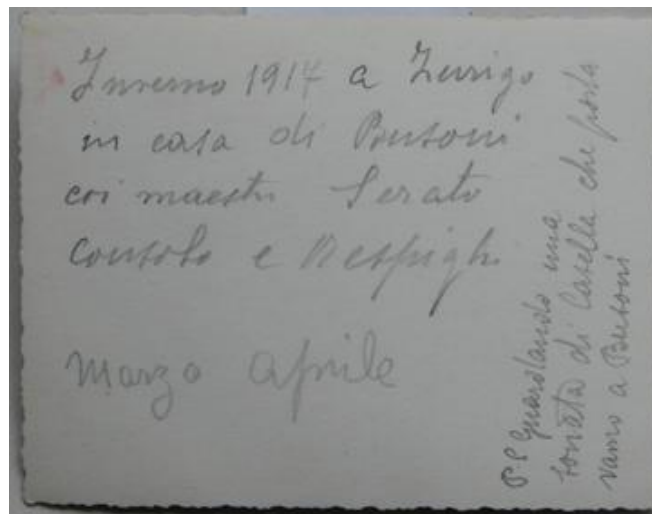 Inverno 1917 a Zurigo
in casa di Busoni
coi maestri Serato
Consolo e Respighi
marzo aprile
PS Guardando una
sonata di Casella che porta
vamo a Busoni